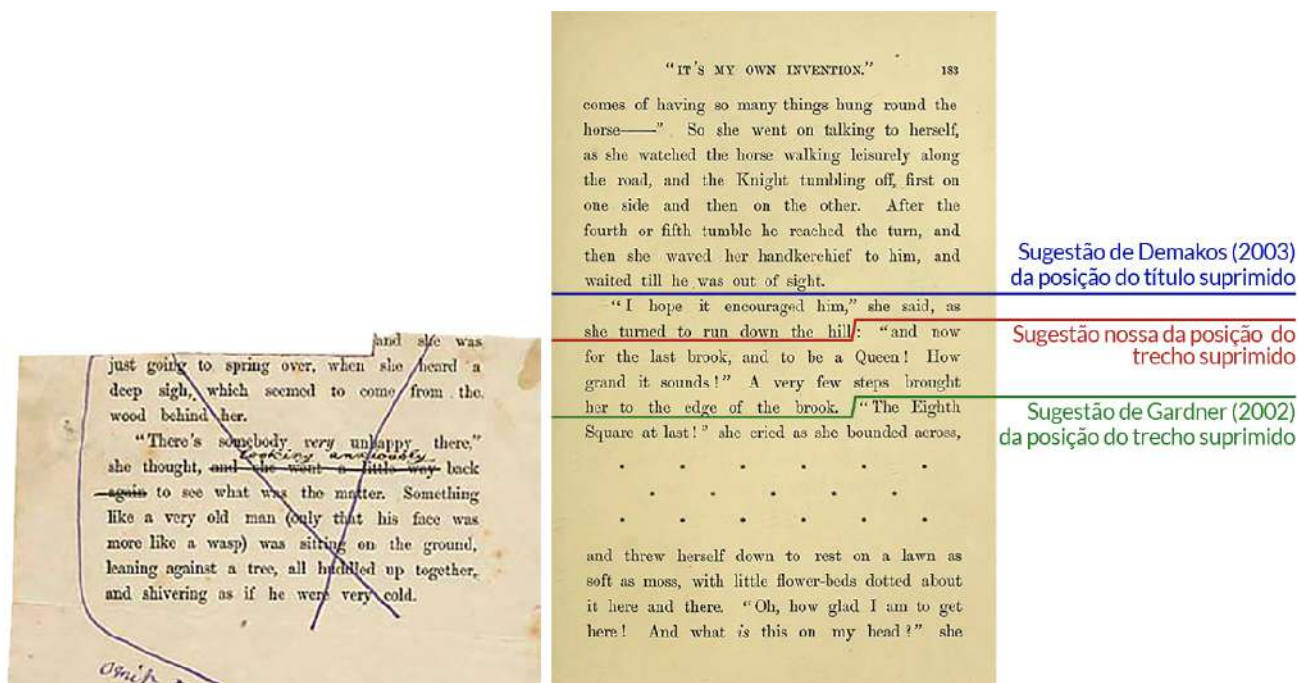 and she was
just going to spring over, when she heard a
deep sigh, which seemed to come from the
wood behind her.
"There's somebody very unhappy there,"
looking anxiously
she thought, and she went a little way back
again to see what was the matter. Something
like a very old man (only that his face was
more like a wasp) was sitting on the ground,
leaning against a tree, all huddled up together,
and shivering as if he were very cold.
"IT'S MY OWN INVENTION." 183
comes of having so many things hung round the
horse——" So she went on talking to herself,
as she watched the horse walking leisurely along
the road, and the Knight tumbling off, first on
one side and then on the other. After the
fourth or fifth tumble he reached the turn, and
then she waved her handkerchief to him, and
waited till he was out of sight.
"I hope it encouraged him," she said, as
she turned to run down the hill: "and now
for the last brook, and to be a Queen! How
grand it sounds!" A very few steps brought
her to the edge of the brook. "The Eighth
Square at last!" she cried as she bounded across,
and threw herself down to rest on a lawn as
soft as moss, with little flower-beds dotted about
it here and there. "Oh, how glad I am to get
here! And what is this on my head?" she
Sugestão de Demakos (2003)
da posição do título suprimido
Sugestão nossa da posição do
trecho suprimido
Sugestão de Gardner (2002)
da posição do trecho suprimido